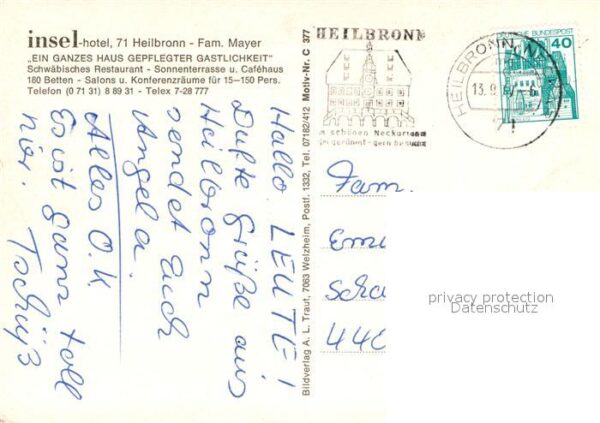 insel-hotel, 71 Heilbronn - Fam. Mayer
„EIN GANZES HAUS GEPFLEGTER GASTLICHKEIT"
Schwäbisches Restaurant - Sonnenterrasse u. Caféhaus
180 Betten - Salons u. Konferenzräume für 15—150 Pers.
Telefon (0 71 31) 8 89 31 - Telex 7-28 777
Hallo LEUTE!
Dufte Grüße aus
Heilbronn
sendet Euch
Angela.
Alles O.K
Es ist ganz toll
hier.
Tschüß
Bildverlag A. L. Traut, 7063 Welzheim, Postf. 1332, Tel. 07182/412 Motiv-Nr. C 377
HEILBRONN
schönen Neckar
gern besucht
HEILBRONN
13.9.
71
DEUTSCHE BUNDESPOST
40
Fam.
Em
Scha
440
privacy protection
Datenschutz